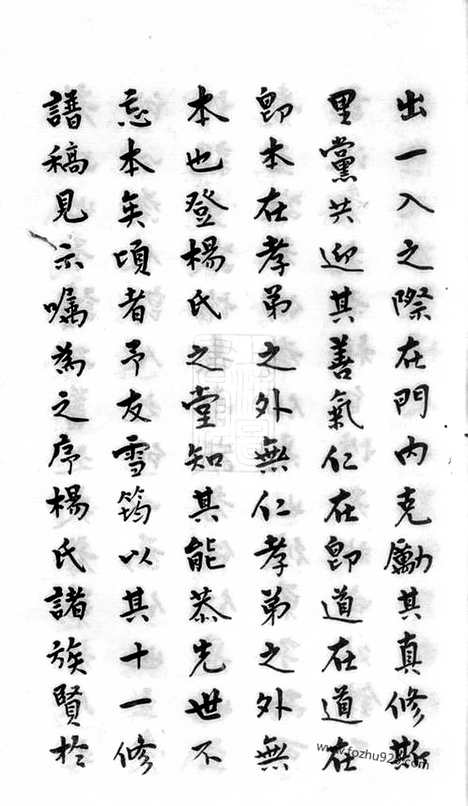 出一入之際在門内克勵其真修斯
里黨共迎其善氣仁在即道在道在
即本在孝弟之外無仁孝弟之外無
本也登楊氏之堂知其能恭先世不
忘本矣頃者予友雪筠以其十一修
譜稿見示囑為之序楊氏諸族賢於
www.fozhu920.com